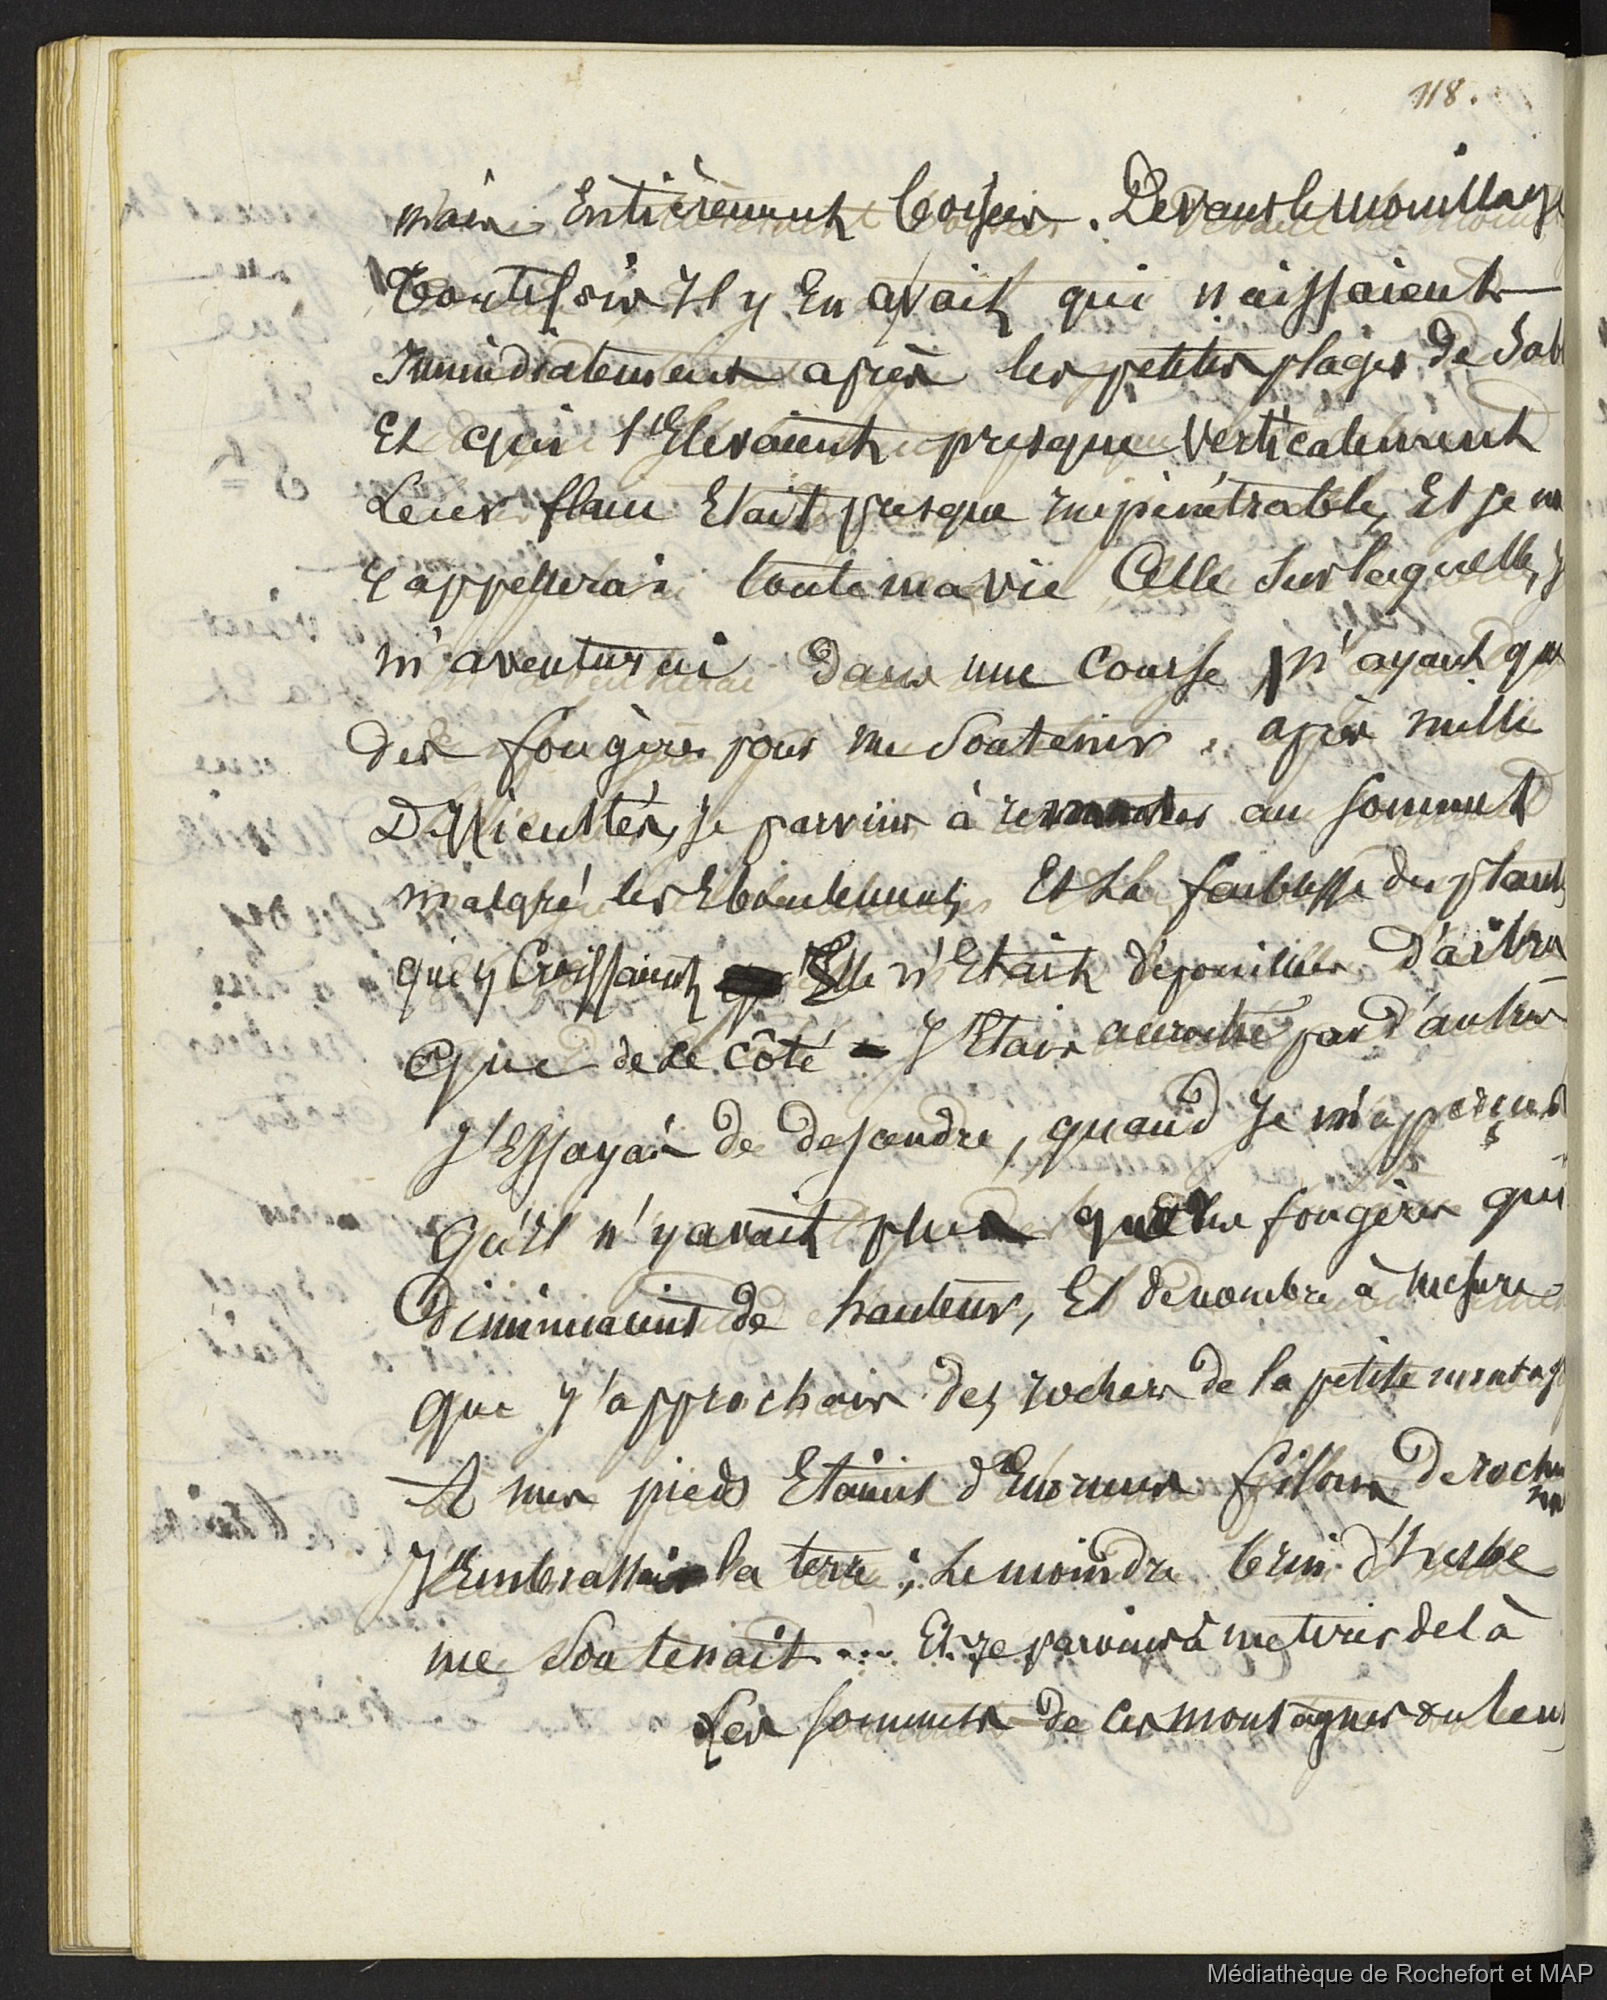 118.
mais Entièrement boisées. Devant le mouillage
Toutefois Il y En avait qui naissaient
Immédiatement après les petites plages de Sab
Et qui s'Elevaient presque verticalement
Leur flanc Etait presque impénétrable, Et je m
rappellerai toute ma vie Celle sur laquelle, j
m'aventurai dans une course, n'ayant que
des fougères pour me soutenir. après mille
Difficultés, je parvins à remonter au sommet
malgré les Eboulements, Et La faiblesse des plantes
qui y Croissaient Elle n'Etait dépouillée d'arbres
que de ce côté - J'Etais accroché par d'autres
J'Essayai de descendre, quand Je m'apperçus
Qu'il n'y avait plus que des fougères qui
diminuaient de hauteur, Et de nombre à mesure
que j'approchais des rochers de la petite montag
A mes pieds Etaient d'Enormes fillons de roches
J'Embrassais la terre; Le moindre brin d'herbe
me Soutenait.... Et je parvins à me tirer de là
Les sommets de ces montagnes ou leurs
Médiathèque de Rochefort et MAP